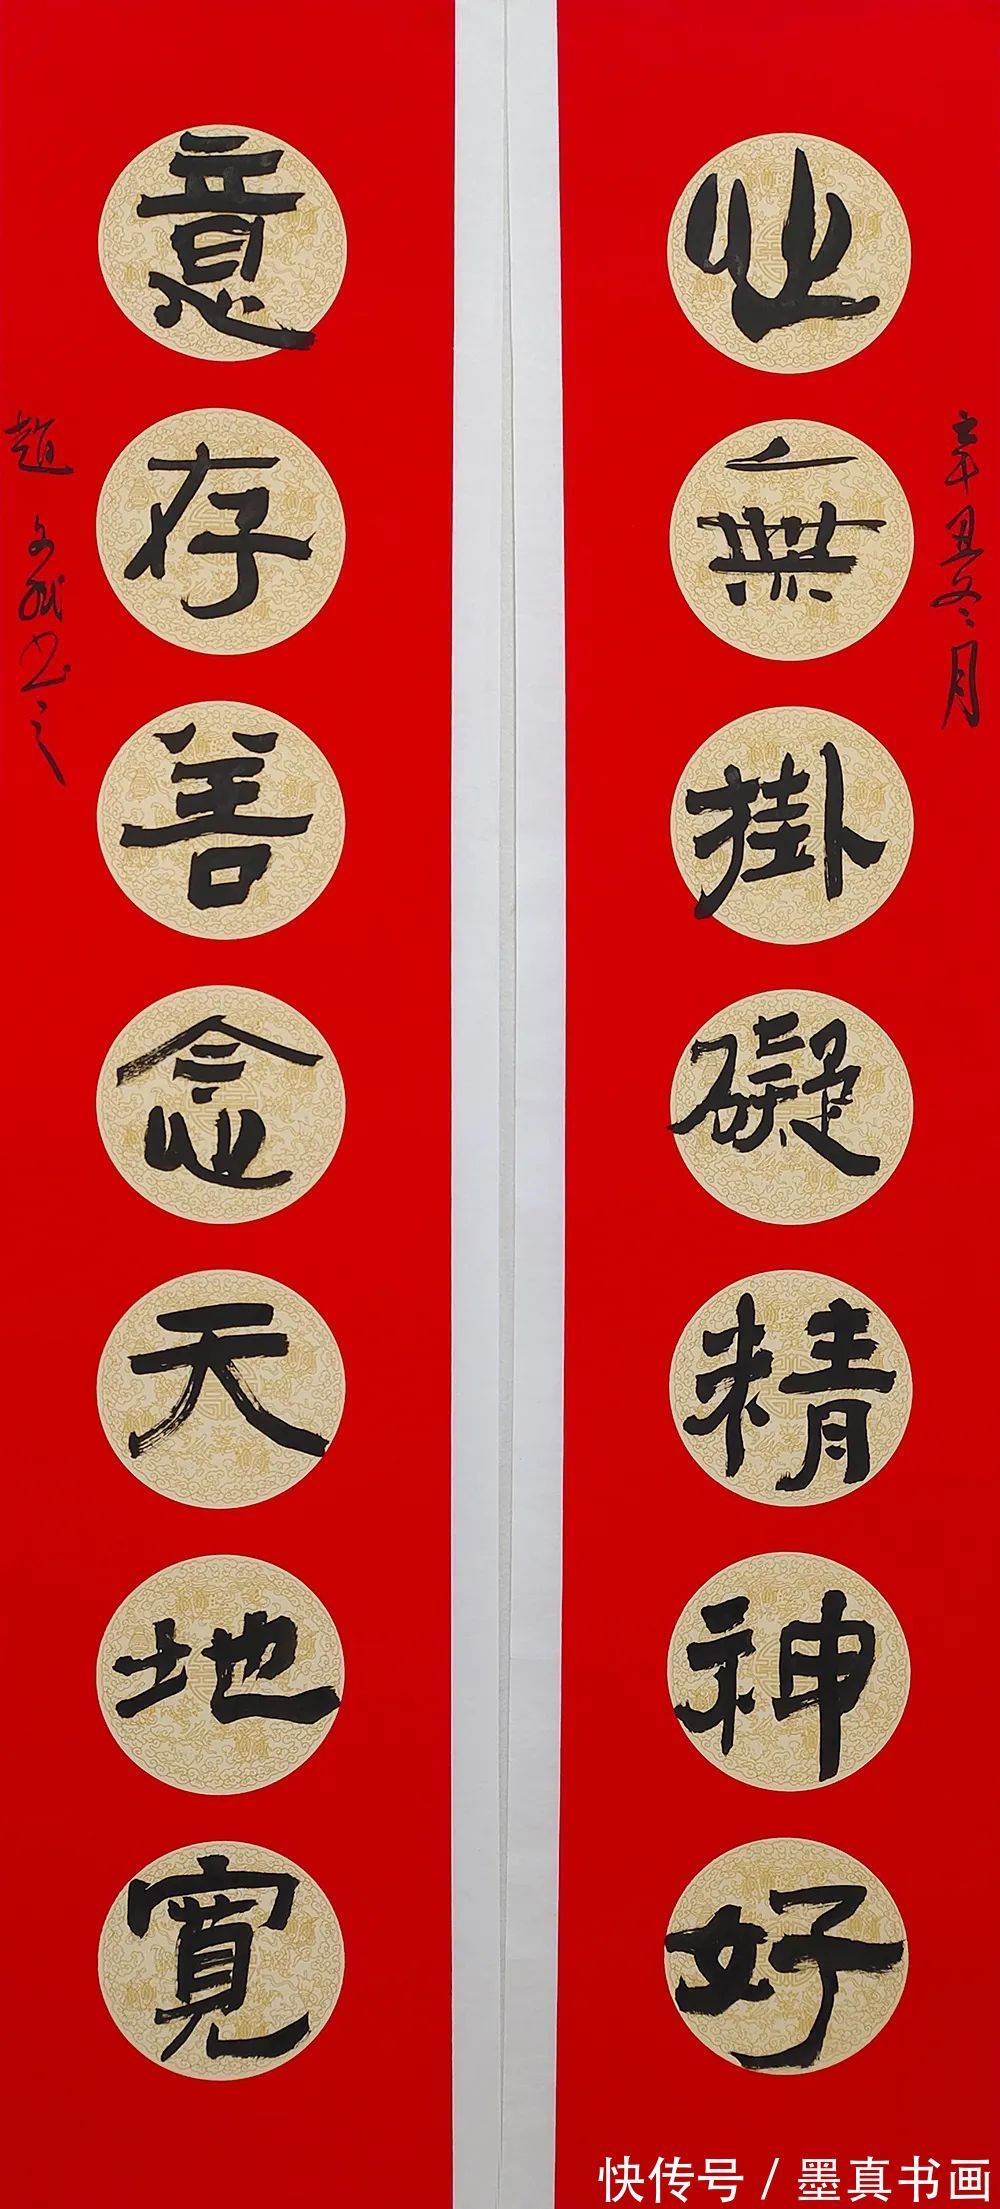 心無掛礙精神好
辛丑冬月
意存善念天地寬
趙文成书之
快传号 / 墨真书画